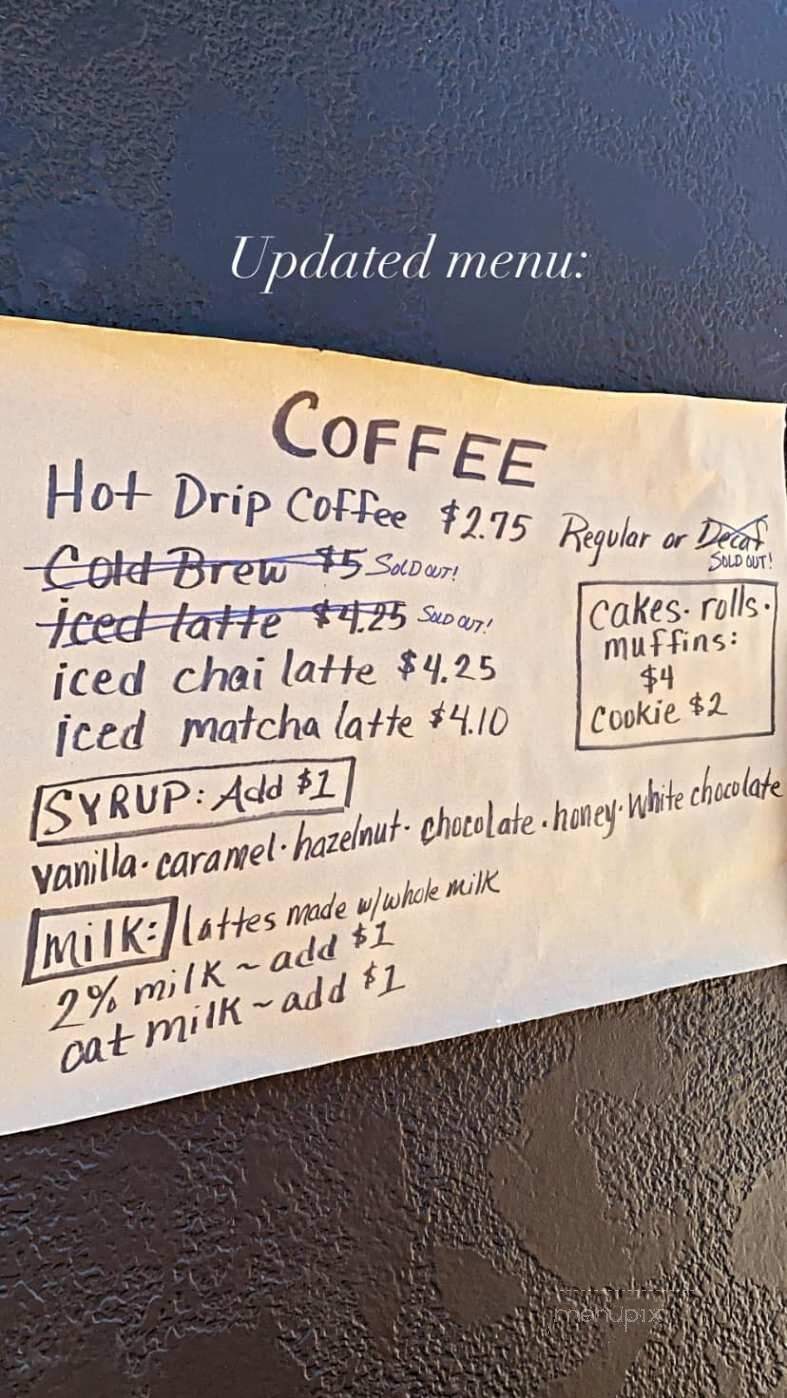 Updated menu:
COFFEE
Hot Drip Coffee $2.75 Regular or Decaf
SOLD OUT!
Cold Brew $5 SOLD OUT!
iced latte $4.25 SOLD OUT!
iced chai latte $4.25
iced matcha latte $4.10
cakes · rolls ·
muffins:
$4
cookie $2
SYRUP: Add $1
vanilla · caramel · hazelnut · chocolate · honey · white chocolate
Milk: lattes made w/whole milk
2% milk ~ add $1
oat milk ~ add $1
menupix